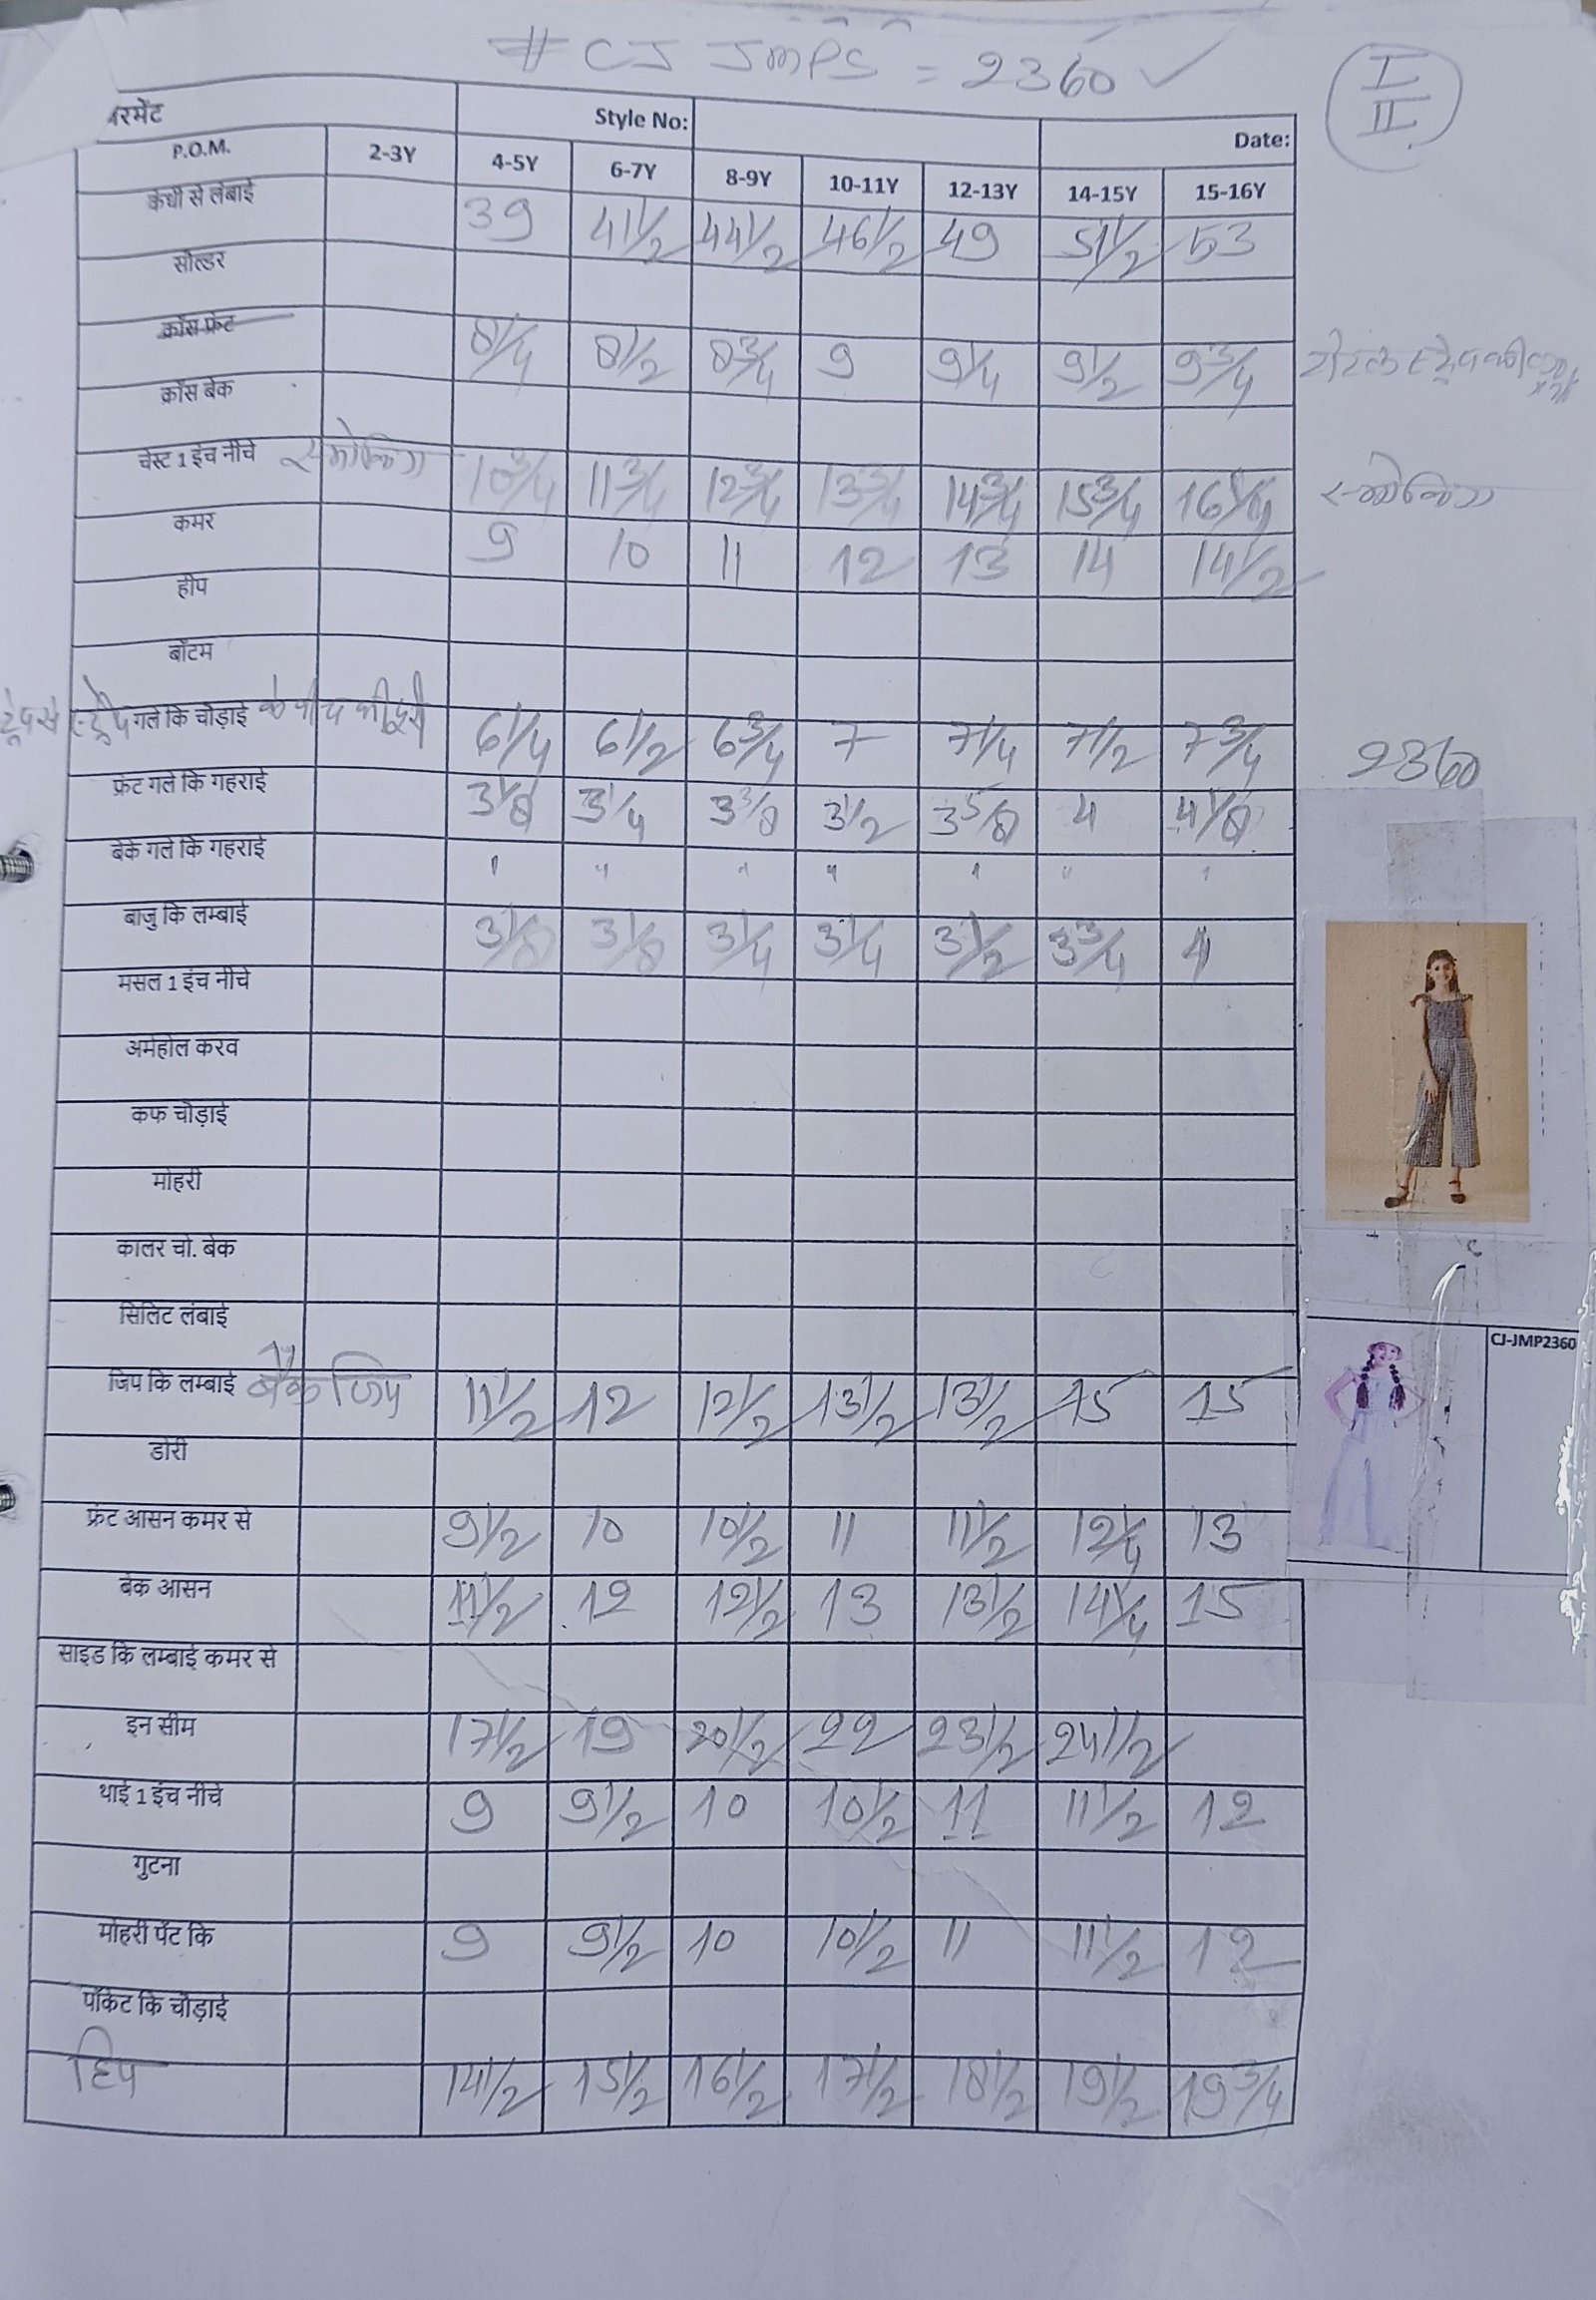 # CJ JMPS = 2360 ✓
I
II
रमेंट Style No: Date:
P.O.M. 2-3Y 4-5Y 6-7Y 8-9Y 10-11Y 12-13Y 14-15Y 15-16Y
कंधी से लंबाई 39 41 1/2 44 1/2 46 1/2 49 51 1/2 53
सोल्डर
क्रॉस फ्रंट 8 1/4 8 1/2 8 3/4 9 9 1/4 9 1/2 9 3/4 टोटल स्ट्रेप की
क्रॉस बेक
चेस्ट 1 इंच नीचे स्मोकिंग 10 3/4 11 3/4 12 3/4 13 3/4 14 3/4 15 3/4 16 1/4 स्मोकिंग
कमर 9 10 11 12 13 14 14 1/2
हीप
बॉटम
स्ट्रेप गले कि चोड़ाई के बीच की दूरी 6 1/4 6 1/2 6 3/4 7 7 1/4 7 1/2 7 3/4 2360
फ्रंट गले कि गहराई 3 1/8 3 1/4 3 3/8 3 1/2 3 5/8 4 4 1/8
बेक गले कि गहराई " " " " " " "
बाजु कि लम्बाई 3 1/8 3 1/8 3 1/4 3 1/4 3 1/2 3 3/4 4
मसल 1 इंच नीचे
अर्महोल करव
कफ चोड़ाई
मोहरी
कालर चो. बेक
सिलिट लंबाई
CJ-JMP2360
जिप कि लम्बाई बैक जिप 11 1/2 12 12 1/2 13 1/2 13 1/2 15 15
डोरी
फ्रंट आसन कमर से 9 1/2 10 10 1/2 11 11 1/2 12 1/4 13
बेक आसन 11 1/2 12 12 1/2 13 13 1/2 14 1/4 15
साइड कि लम्बाई कमर से
इन सीम 17 1/2 19 20 1/2 22 23 1/2 24 1/2
थाई 1 इंच नीचे 9 9 1/2 10 10 1/2 11 11 1/2 12
गुटना
मोहरी पॅट कि 9 9 1/2 10 10 1/2 11 11 1/2 12
पॉकेट कि चौड़ाई
हिप 14 1/2 15 1/2 16 1/2 17 1/2 18 1/2 19 1/2 19 3/4